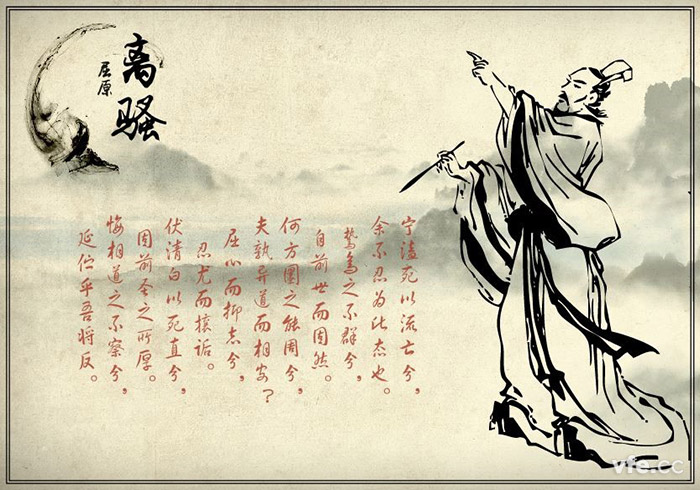 离骚
屈原
宁溘死以流亡兮，
余不忍为此态也。
鸷鸟之不群兮，
自前世而固然。
何方圜之能周兮，
夫孰异道而相安？
屈心而抑志兮，
忍尤而攘诟。
伏清白以死直兮，
固前圣之所厚。
悔相道之不察兮，
延伫乎吾将反。
vfe.cc